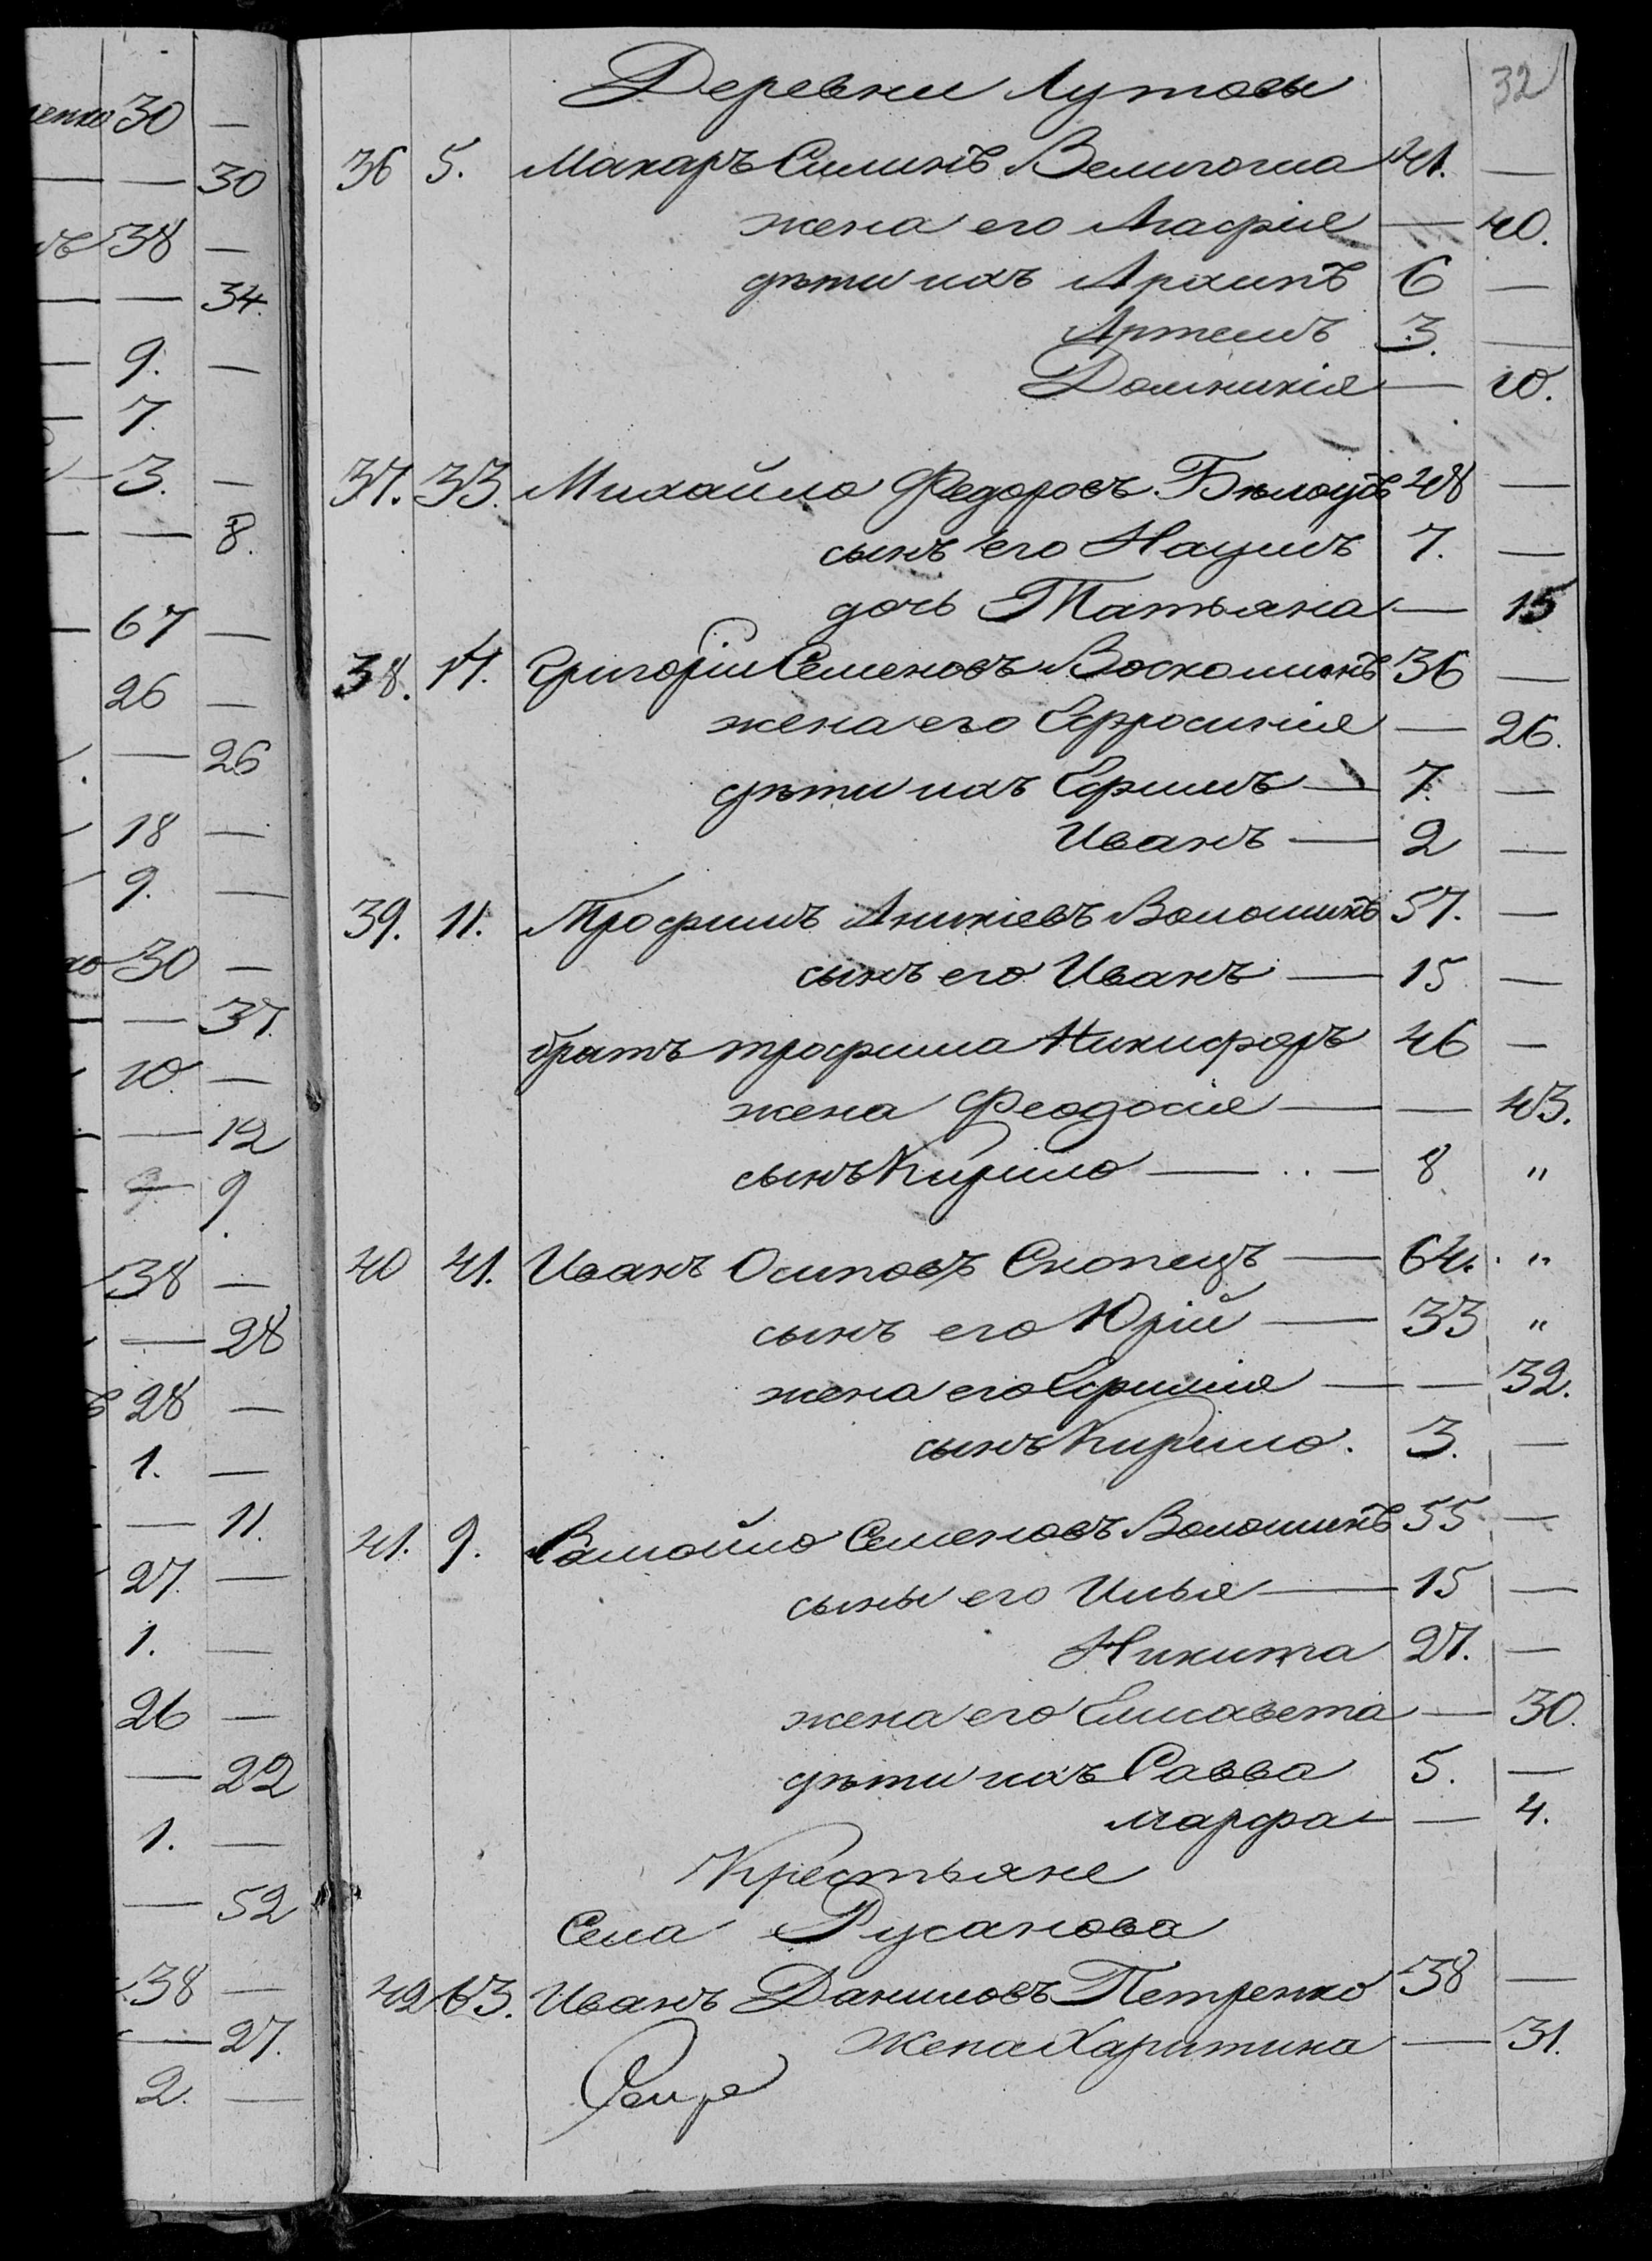 32
Деревни Лутовы
36 5. Макаръ Силинъ Велигоша 41. —
жена его Агафія — 40.
дѣти ихъ Архипъ 6 —
Артемъ 3. —
Домникія — 10.
37. 33. Михайло Федоровъ Бѣлоусъ 48 —
сынъ его Наумъ 7. —
дочь Татьяна — 15
38. 17. Григорій Семеновъ Воскошинъ 36 —
жена его Ефросинія — 26.
дѣти ихъ Ефимъ — 7. —
Иванъ — 2 —
39. 11. Трофимъ Аникіевъ Волошинъ 57. —
сынъ его Иванъ — 15 —
братъ трофима Никифоръ 46 —
жена Феодосія — — 43.
сынъ Кирило — 8 "
40 41. Иванъ Осиповъ Скопецъ — 64. "
сынъ его Юрій — 33 "
жена его Ефимія — — 32.
сынъ Кирило. 3. —
41. 9. Самойло Семеновъ Волошинъ 55 —
сыны его Илья — 15 —
Никита 27. —
жена его Елисавета — 30.
дѣти ихъ Савва 5. —
марфа — 4.
Крестьяне
Села Русанова
42 63. Иванъ Даниловъ Петренко 38 —
жена Харитина — 31.
30 —
— 30
38 —
— 34.
9. —
7.
3. —
— 8.
67 —
26 —
— 26
18 —
9. —
30 —
— 37.
10. —
— 12
9
38 —
— 28
28 —
1. —
— 11.
27. —
1. —
26 —
— 22
1. —
— 52
38 —
— 27.
2. —